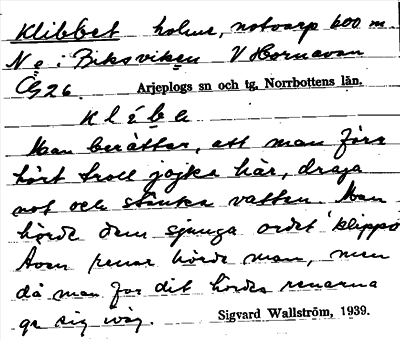 Klibbet holme, notvarp 600 m.
N o i Biksviken V Hornavan
G26. Arjeplogs sn och tg, Norrbottens län.
Man berättar, att man förr
hört troll jojka här, draga
not och stänka vatten. Man
hörde dem sjunga ordet klippo
Även renar hörde man, men
då man for dit hördes renarna
ge sig iväg. Sigvard Wallström, 1939.